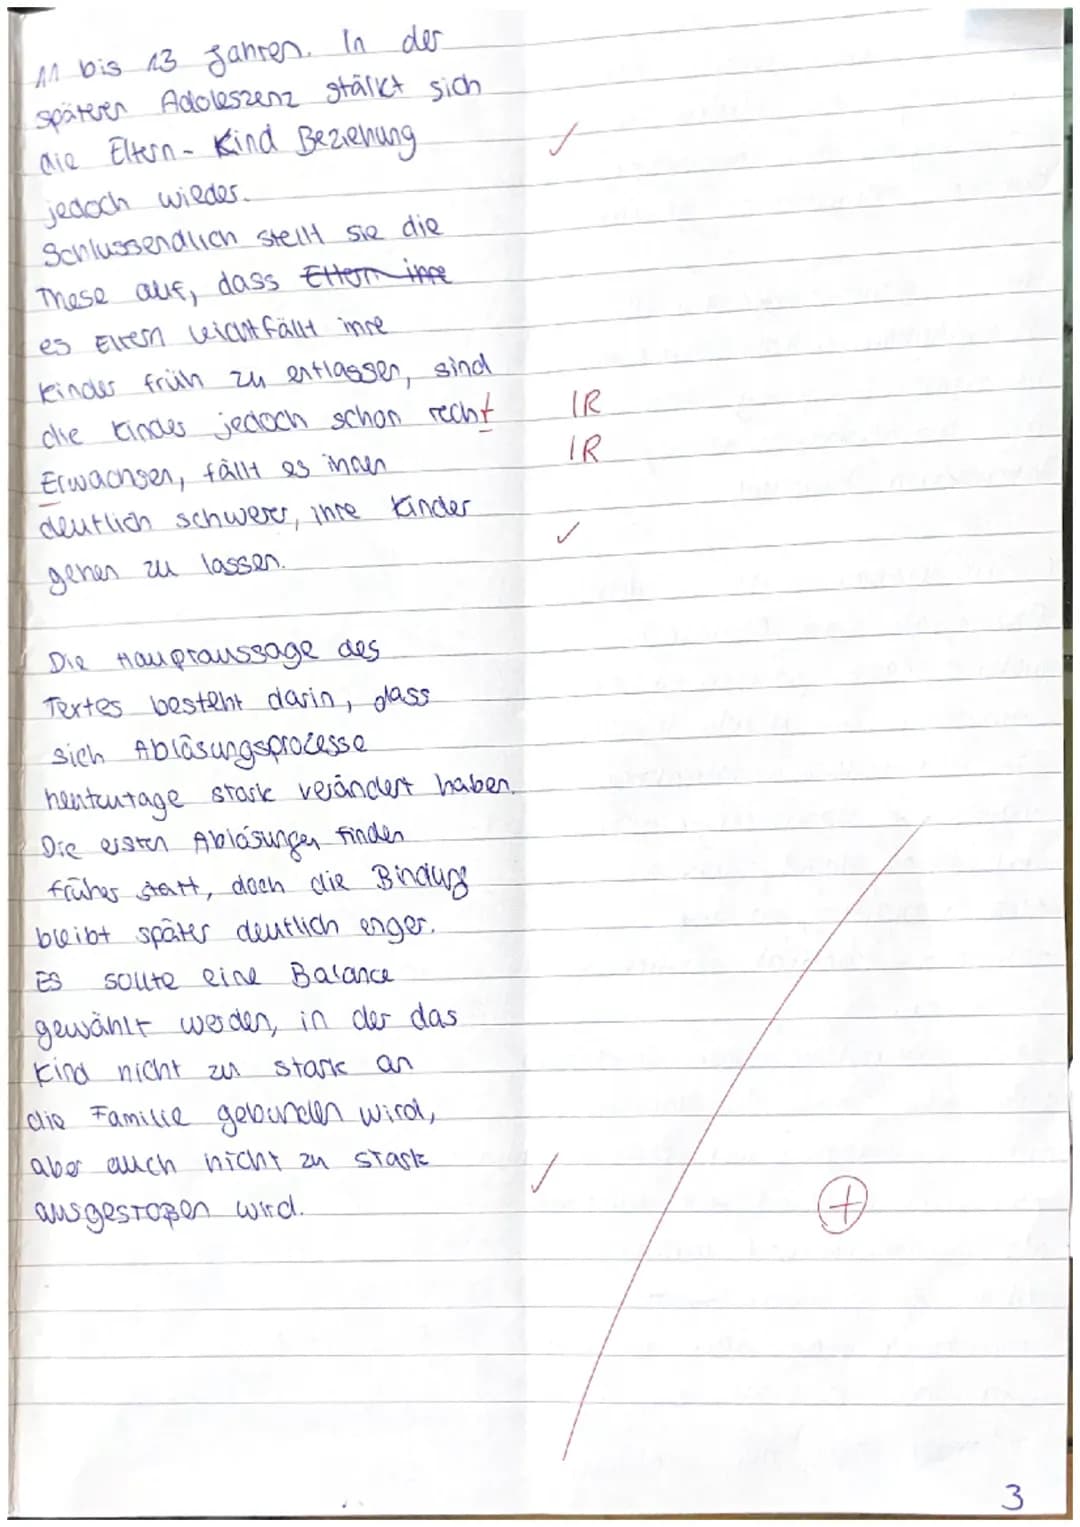 11 bis 13 Jahren. In der
späteren Adoleszenz stärkt sich
die Eltern-Kind Beziehung ✓
jedoch wieder.
Schlussendlich stellt sie die
These auf, dass ~~Eltern ihre~~
es Eltern leichtfällt ihre
Kinder früh zu entlassen, sind
die Kinder jedoch schon recht IR
Erwachsen, fällt es ihnen IR
deutlich schwerer, ihre Kinder
gehen zu lassen. ✓
Die Hauptaussage des
Textes besteht darin, dass
sich Ablösungsprozesse
heutzutage stark verändert haben.
Die ersten Ablösungen finden
früher statt, doch die Bindung
bleibt später deutlich enger.
Es sollte eine Balance
gewählt werden, in der das
Kind nicht zu stark an
die Familie gebunden wird,
aber auch nicht zu stark ✓
ausgestoßen wird. +
3